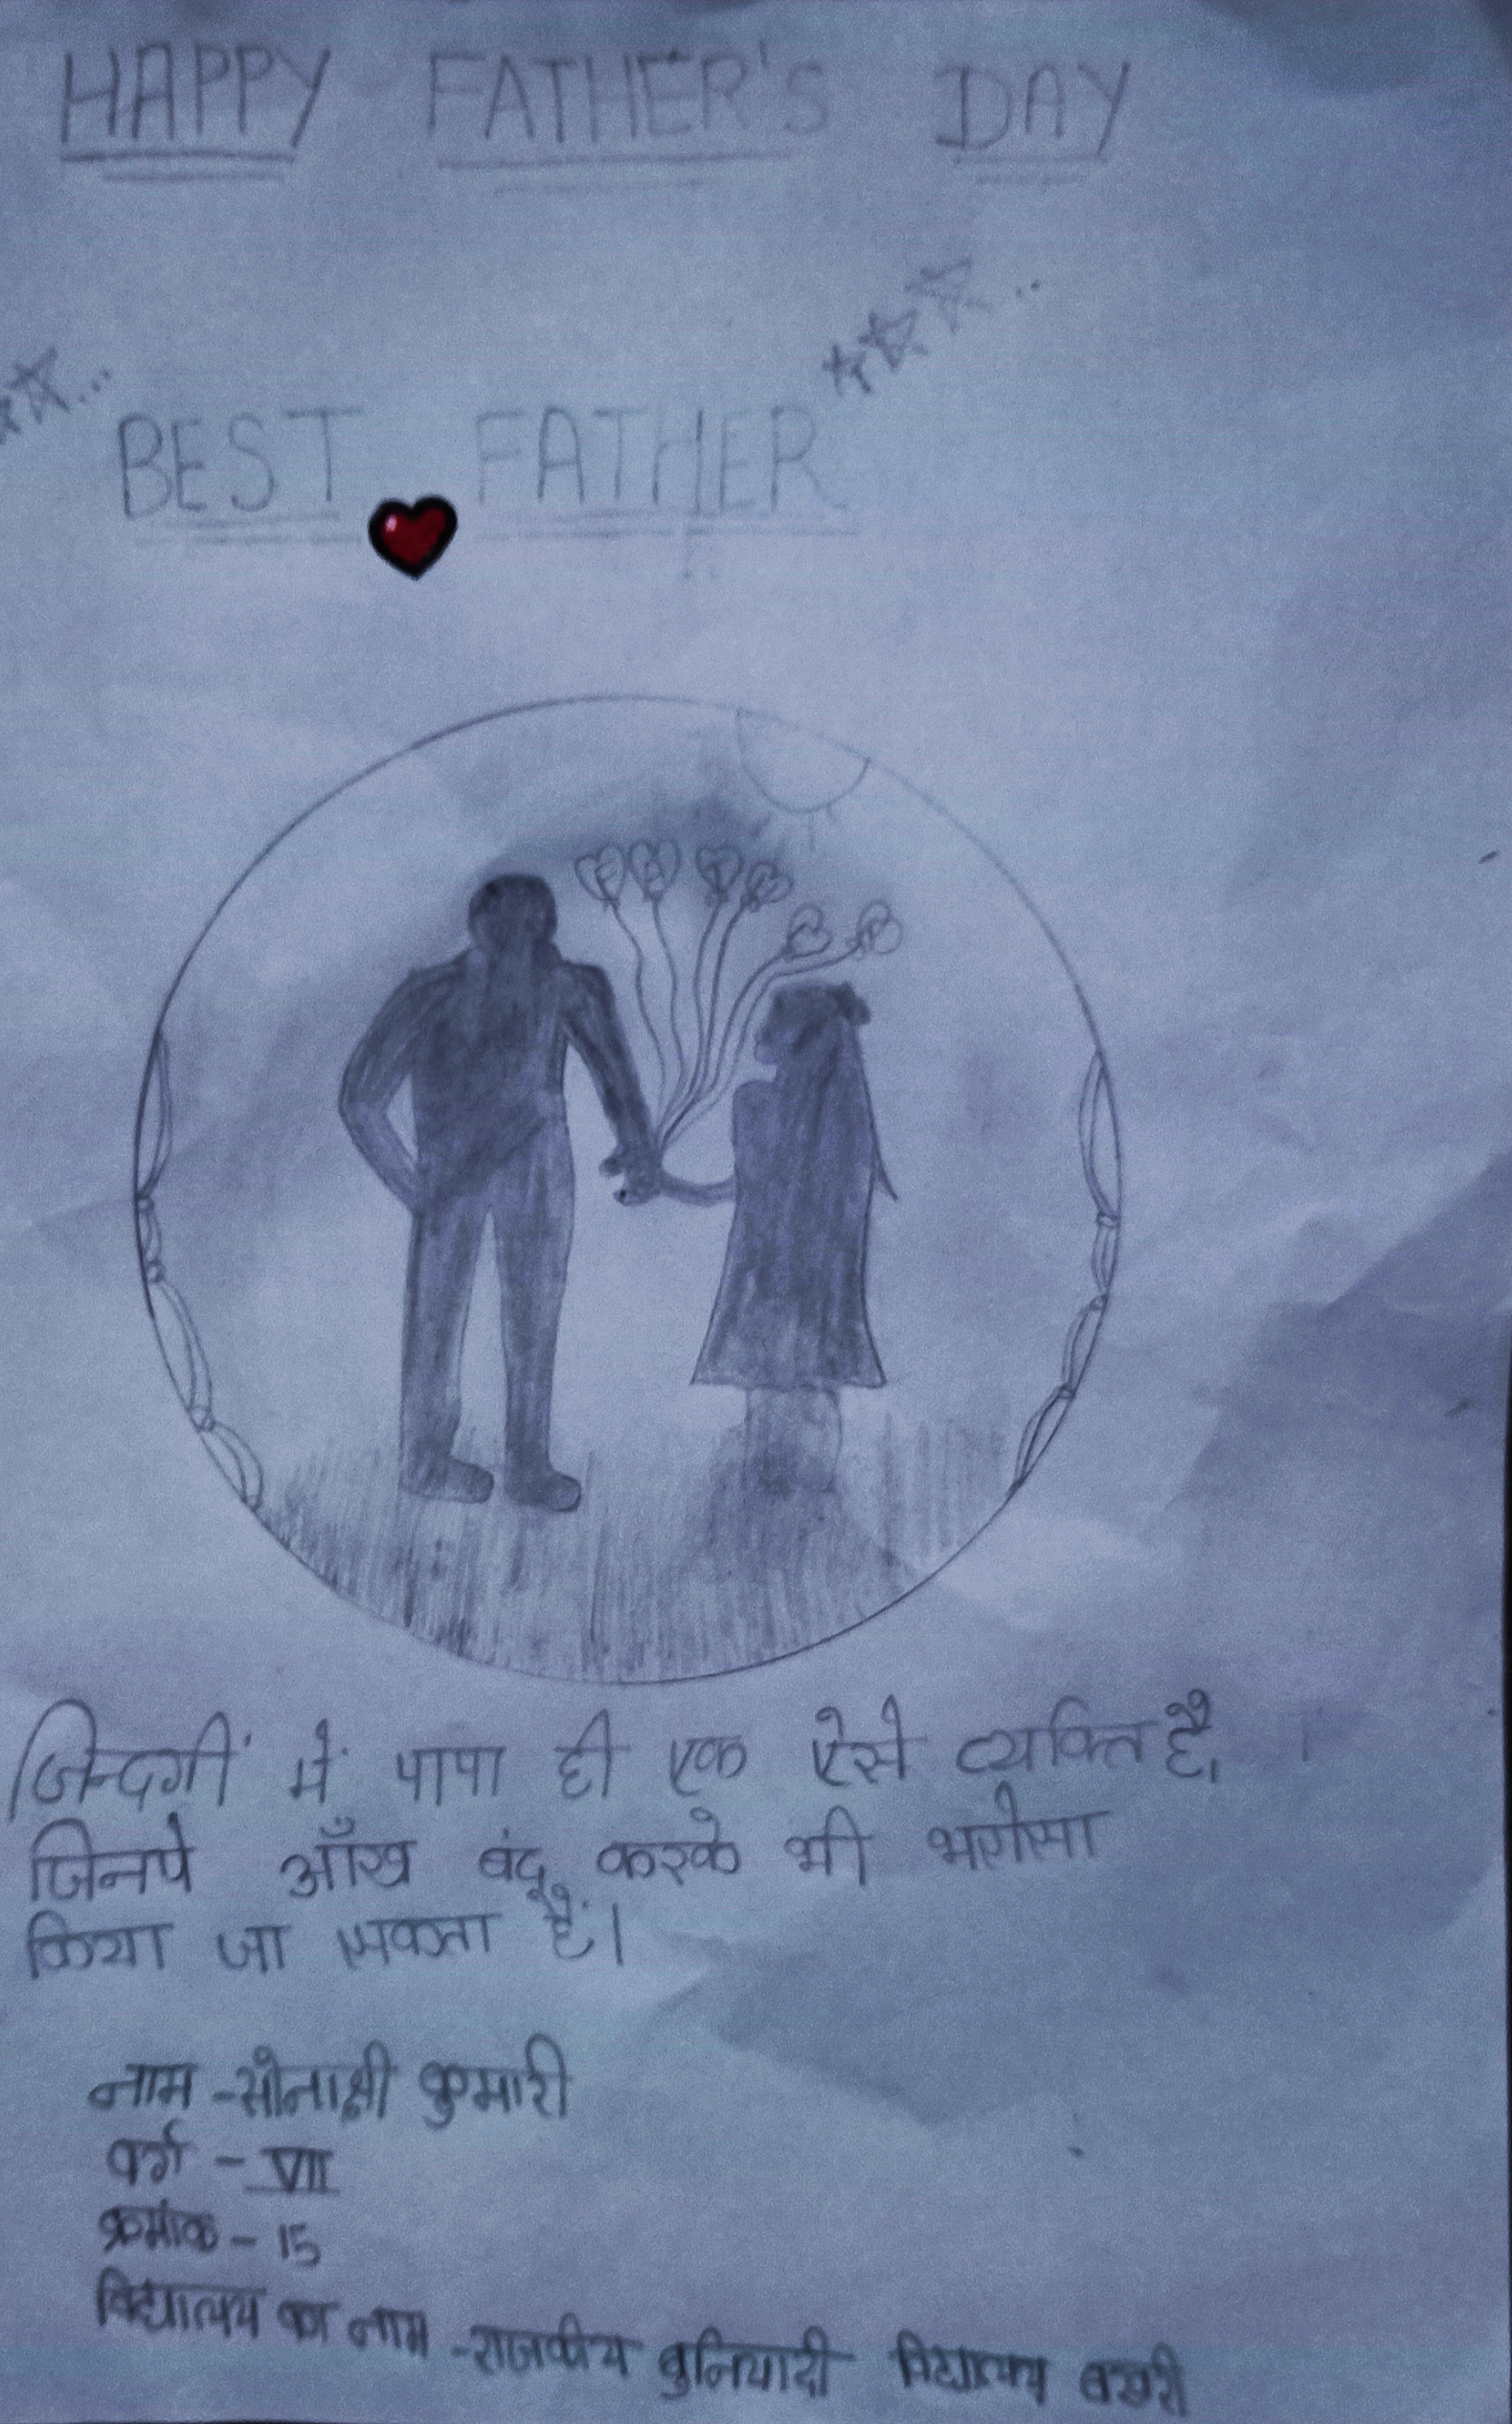 HAPPY FATHER'S DAY
BEST FATHER
F A T H E R
जिन्दगीं में पापा ही एक ऐसे व्यक्ति है,
जिनपे आँख बंद करके भी भरोसा
किया जा सकता हैं।
नाम -सोनाक्षी कुमारी
वर्ग - VII
क्रमांक - 15
विद्यालय का नाम -राजकीय बुनियादी विद्यालय बखरी